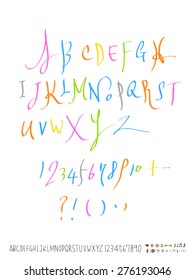 A B C D E F G H
I J K L M N O P Q R S T
U V W X Y Z
1 2 3 4 5 6 7 8 9 1 0 + -
? ! ( ) . ,
ABCDEFGHIJKLMNOPQRSTUVWXYZ 1234567890
shutterstock.com · 276193046